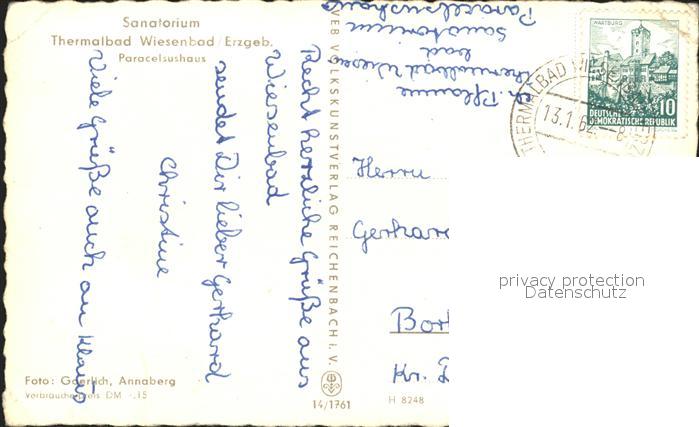 Sanatorium
Thermalbad Wiesenbad / Erzgeb.
Paracelsushaus
Recht herzliche Grüße aus
Wiesenbad
sendet Dir lieber Gerhard
Christine
Viele Grüße auch an Klaus
Foto: Goerlich, Annaberg
Verbraucherpreis DM -.15
VEB VOLKSKUNSTVERLAG REICHENBACH i. V.
14/1761
H 8248
Pflaume
Thermalbad Wiesen
Sanatorium
Paracelsushaus
WARTBURG
10
DEUTSCHE
DEMOKRATISCHE REPUBLIK
THERMALBAD WIESE
13.1.62 -8
Herrn
Gerhar
Bor
Kr.
privacy protection
Datenschutz